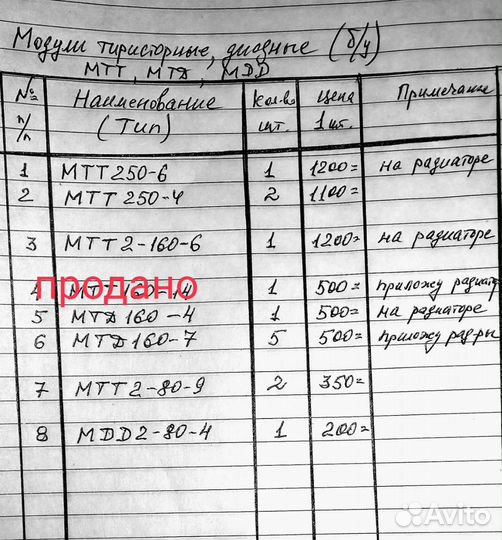 Модули тиристорные, диодные (б/у)
МТТ, МТД, MDD
№ п/п Наименование (Тип) Кол-во шт. Цена 1 шт. Примечание
1 МТТ 250-6 1 1200= на радиаторе
2 МТТ 250-4 2 1100=
3 МТТ2-160-6 1 1200= на радиаторе
продано
4 МТТ 160-14 1 500= приложу радиат
5 МТД 160-4 1 500= на радиаторе
6 МТД 160-7 5 500= приложу рад-ры
7 МТТ2-80-9 2 350=
8 MDD2-80-4 1 200=
Avito